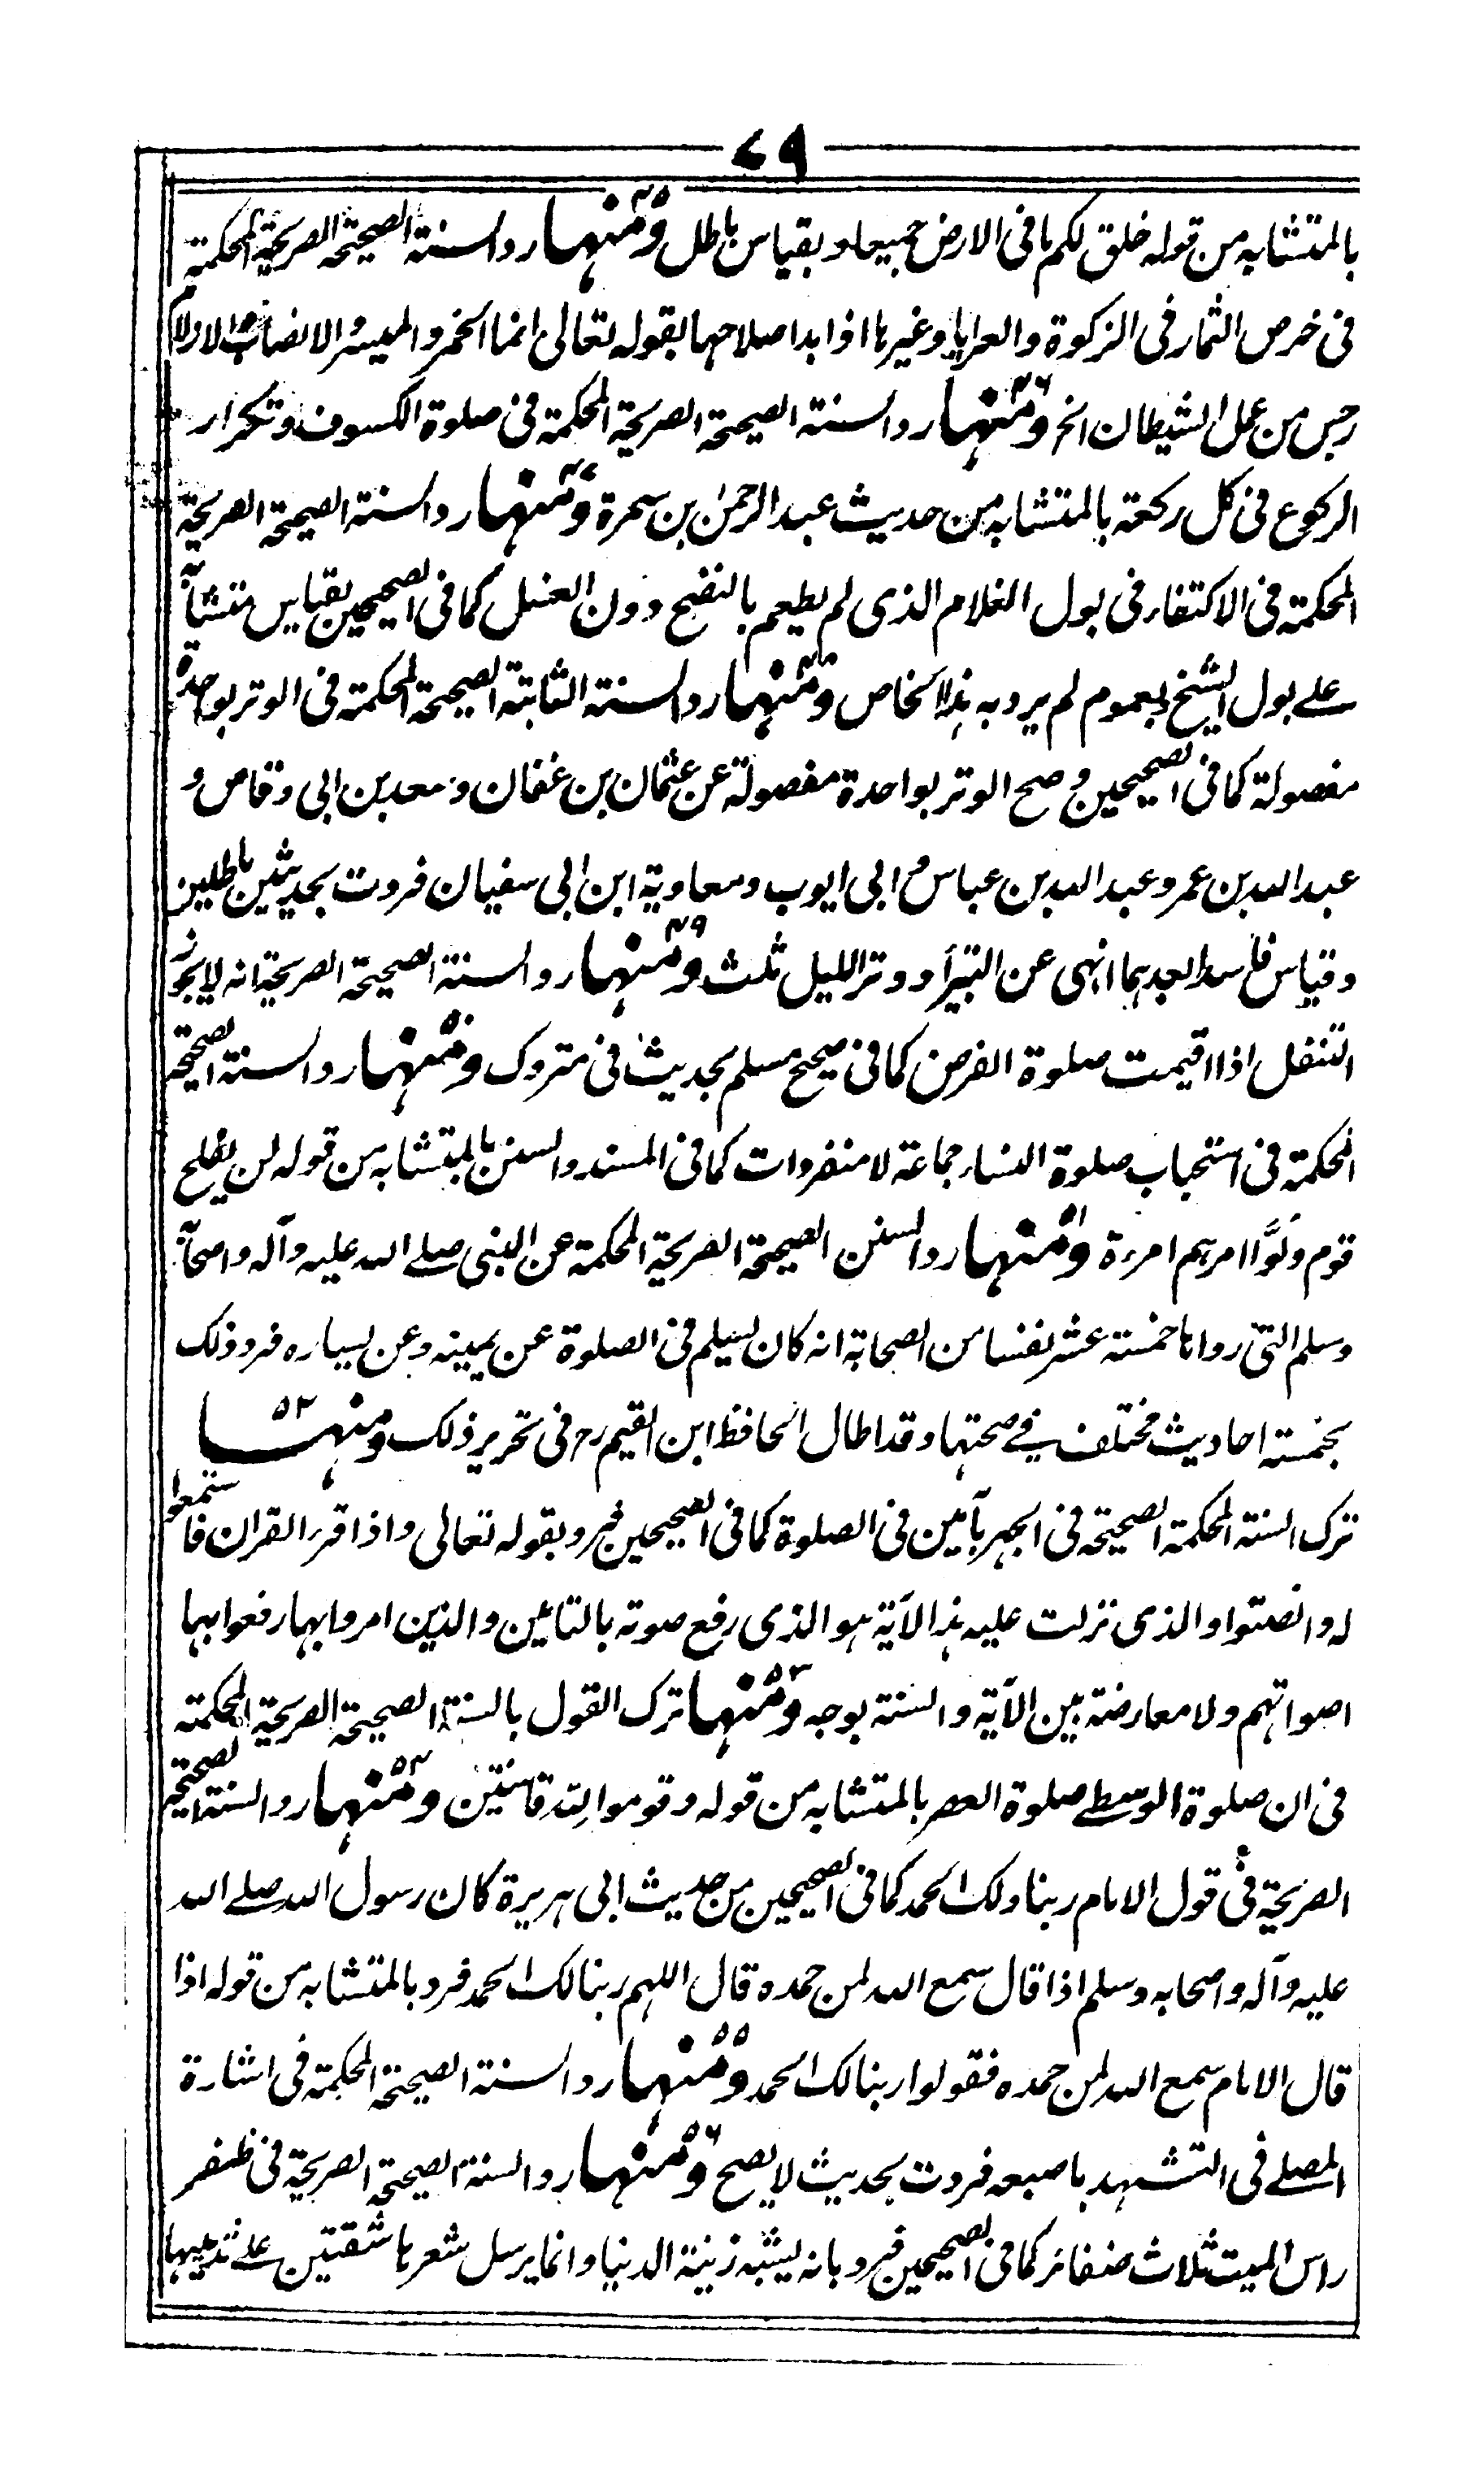 ۷۹
بالمتشابه من قوله خلق لكم ما فى الارض جميعا و بقياس باطل ومنها ۴۵ رد السنة الصحيحة الصريحة المحكمة
فى خرص الثمار فى الزكوة والعرايا وغيرها اذا بدا صلاحها بقوله تعالى انما الخمر والميسر والانصاب والازلام
رجس من عمل الشيطان الخ ومنها ۴۶ رد السنة الصحيحة الصريحة المحكمة فى صلوة الكسوف وتكرار
الركوع فى كل ركعة بالمتشابه من حديث عبد الرحمن بن سمرة ومنها ۴۷ رد السنة الصحيحة الصريحة
المحكمة فى الاكتفاء فى بول الغلام الذى لم يطعم بالنضح دون الغسل كما فى الصحيحين بقياس متشابه
على بول الشيخ وبعموم لم يرد به هذا الخاص ومنها ۴۸ رد السنة الثابتة الصحيحة المحكمة فى الوتر بواحدة
مفصولة كما فى الصحيحين وصح الوتر بواحدة مفصولة عن عثمان بن عفان وسعد بن ابى وقاص و
عبد الله بن عمر وعبد الله بن عباس وابى ايوب ومعاوية ابن ابى سفيان فردت بحديثين باطلين
وقياس فاسد احدهما انهى عن البتيراء ووتر الليل ثلث ومنها ۴۹ رد السنة الصحيحة الصريحة انه لا يجوز
التنفل اذا اقيمت صلوة الفرض كما فى صحيح مسلم بحديث فى متروك ومنها ۵۰ رد السنة الصحيحة
المحكمة فى استحباب صلوة النساء جماعة لا منفردات كما فى المسند والسنن بالمتشابه من قوله لن يفلح
قوم ولوا امرهم امرءة ومنها ۵۱ رد السنن الصحيحة الصريحة المحكمة عن النبى صلى الله عليه وآله واصحابه
وسلم التى رواها خمسة عشر نفسا من الصحابة انه كان يسلم فى الصلوة عن يمينه وعن يساره فرد ذلك
بخمسة احاديث مختلف فى صحتها وقد اطال الحافظ ابن القيم رح فى تحرير ذلك ومنها ۵۲
ترك السنة المحكمة الصحيحة فى الجهر بآمين فى الصلوة كما فى الصحيحين فيرد بقوله تعالى واذا قرء القران فاستمعوا
له وانصتوا والذى نزلت عليه هذا الآية هو الذى رفع صوته بالتامين والذين امروا بها رفعوا بها
اصواتهم ولا معارضة بين الآية والسنة بوجه ومنها ۵۳ ترك القول بالسنة الصحيحة الصريحة المحكمة
فى ان صلوة الوسطى صلوة العصر بالمتشابه من قوله وقوموا لله قانتين ومنها ۵۴ رد السنة الصحيحة
الصريحة فى قول الامام ربنا ولك الحمد كما فى الصحيحين من حديث ابى هريرة كان رسول الله صلى الله
عليه وآله واصحابه وسلم اذا قال سمع الله لمن حمده قال اللهم ربنا لك الحمد فرد بالمتشابه من قوله اذا
قال الامام سمع الله لمن حمده فقولوا ربنا لك الحمد ومنها ۵۵ رد السنة الصحيحة المحكمة فى اشارة
المصلى فى التشهد باصبعه فردت بحديث لا يصح ومنها ۵۶ رد السنة الصحيحة الصريحة فى ظفر
راس الميت ثلاث ضفائر كما فى الصحيحين فيرد بانه يشبه زينة الدنيا وانما يرسل شعرها شقتين على ثدييها